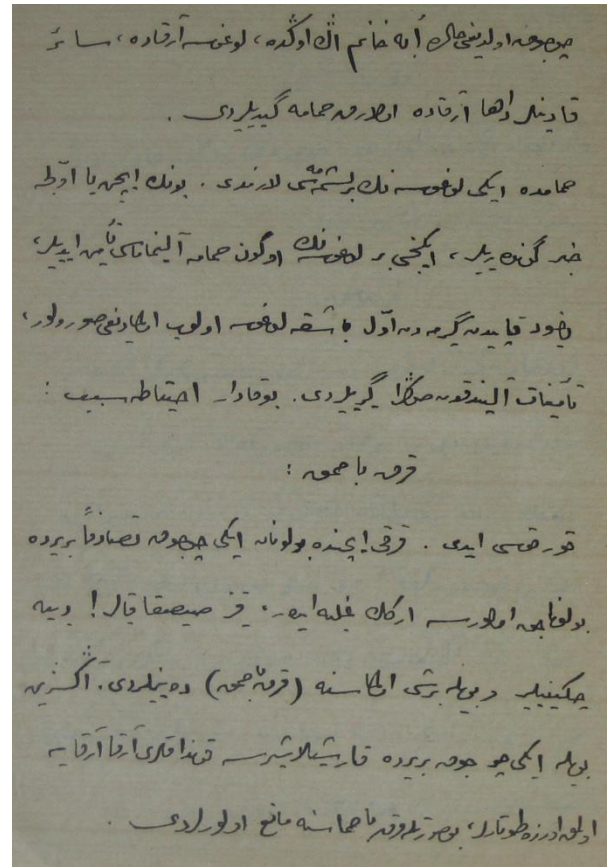 چوجوق اولدیغی حالده أبه خانم اڭ اوڭده، لوغسه آرقاده، سائر
قادینلر داها آرقاده اولارق حمامه گیدیلیردی .
حمامده ایکی لوغوسه نك برلشمه‌سی لازمدی . بونك ایچین یا اوّلجه
خبر گوندریلیر، ایکنجی بر لوغوسه نك اوگون حمامه آلینماماسی تأمین ایدیلیر،
یاخود قاپیدن گیرمه‌دن اوّل باشقه لوغوسه اولوب اولمادیغی صورولور،
تأمینات آلیندقدن صوڭرا گیریلیردی. بوقادار احتیاطه سبب :
قرق باصمق :
قورقوسی ایدی . قرقی ایچنده بولونان ایکی چوجوق تصادفاً بریرده
بولوناجق اولورسه ارکك غلبه ایدر، قیز صیصقا قالیر! دییه
چکینیلیر و بویله برشی اولماسنه (قرق باصمق) ده‌نیلیردی. آڭسزین
بویله ایکی چوجوق بریرده قارشیلاشیرسه قونداقلری آرقا آرقایه
اولمق اوزره طوتارلر، بوصورتله قرق باصماسنه مانع اولورلردی .